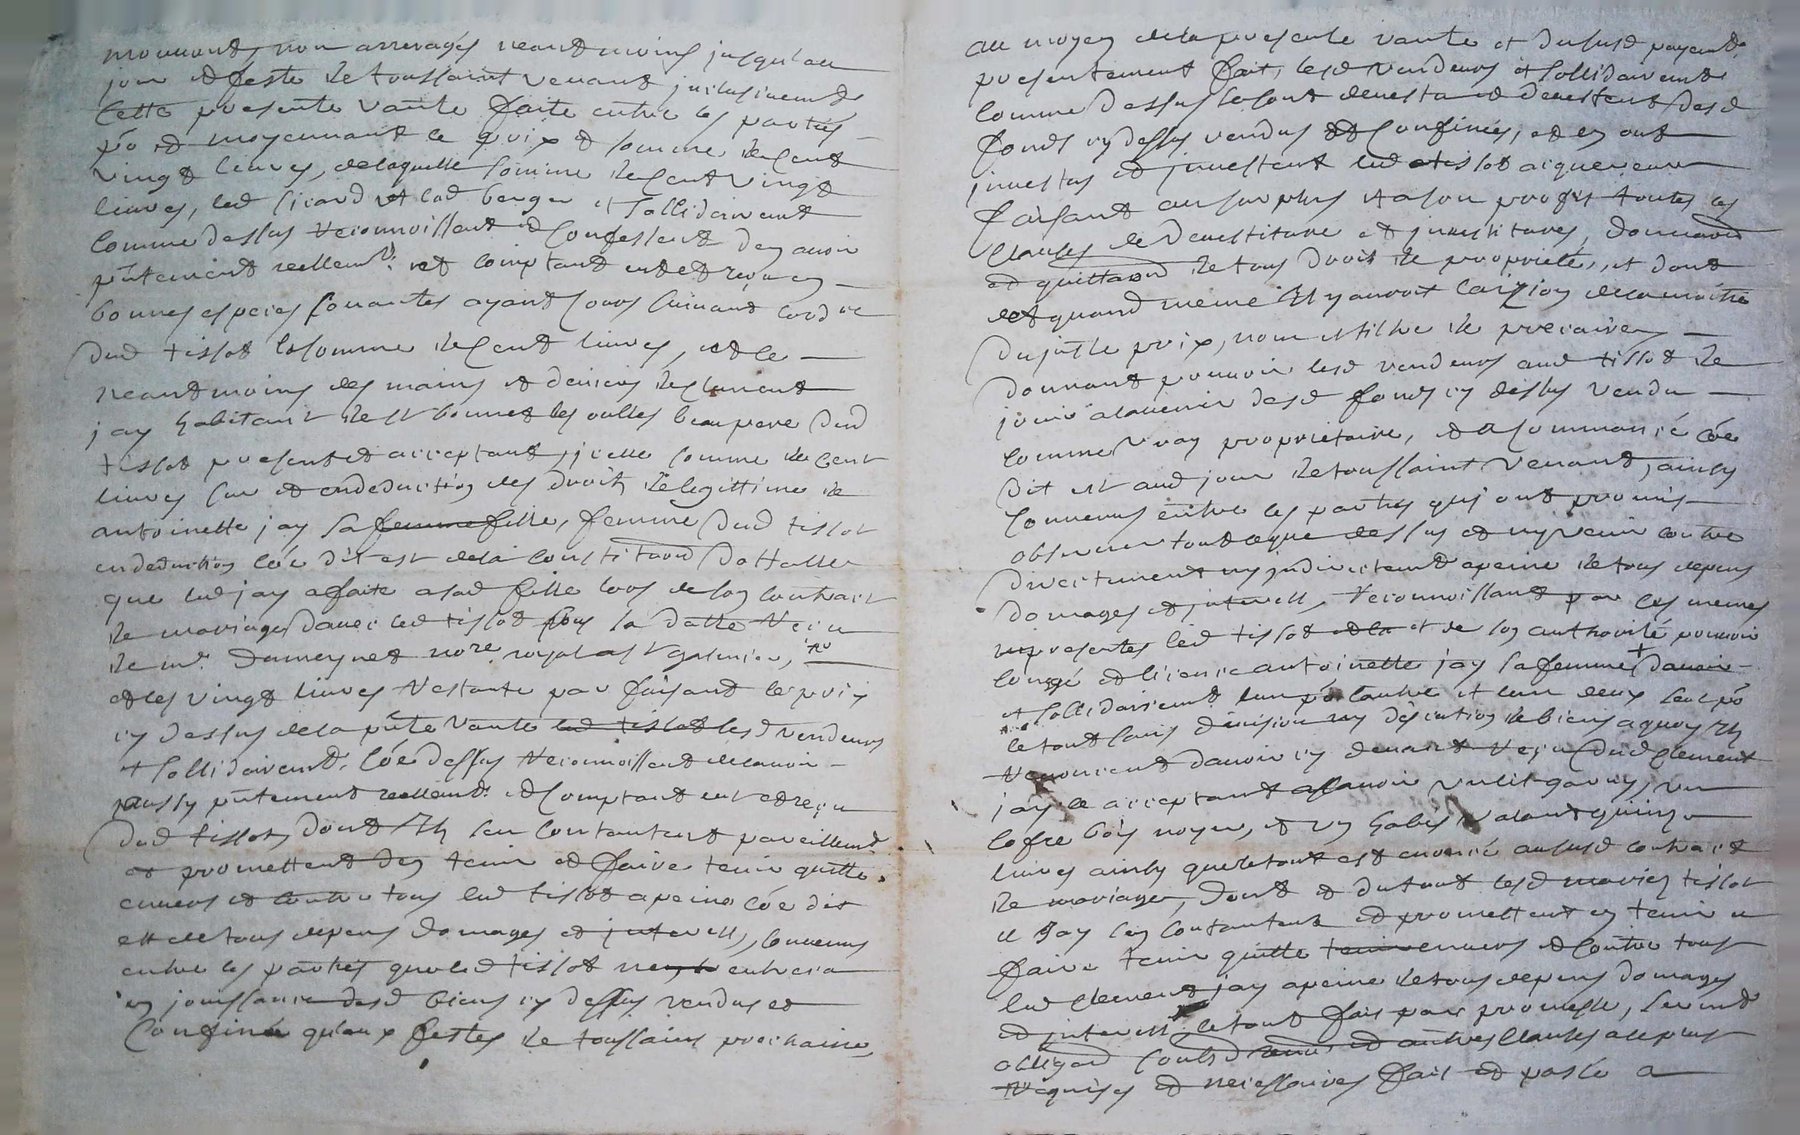 mouvant, non arrerages neantmoins jusqu'au
jour et feste de toussaint venant jnclusivemt
cette presente vante faite entre les parties
po et moyennant le prix et somme de cent
vingt livres, de laquelle somme de cent vingt
livres, led sicard et lad berger et sollidairemt
comme dessus reconnoissent et confessent den avoir
pntement reellemt et comptant eut et reçu en
bonnes especes sonantes ayant cours suivant lord ce
dud tissot la somme de cent livres, et ce
neantmoins des mains et deniers de clement
jay habitant de st bonnet les oulles beaupere dud
tissot present et acceptant, jcelle somme de cent
livres sur et endeduction des droits de legittime de
antoinette jay sa femme fille, femme dud tissot
endeduction coe dit est dela constitaon dottalle
que led jay a faite a sad fille lors de son contract
de mariage davec led tissot sous sa datte reçu
de mr dameynet nore royal a st galmier,
et les vingt livres restante par faisant le prix
cy dessus de la pnte vante led tissot lesd vendeurs
et sollidairemt coe dessus reconnoissent de lavoir
aussy pntement reellemt et comptant eut et reçu
dud tissot, dont ils sen contantent pareillemt
et promettent den tenir et faire tenir quitte
envers et contre tous led tissot a peine coe dit
est de tous depens domages et jnterests, convenus
entre les parties que led tissot nentrera
en jouissance desd biens cy dessus vendus et
confinés qu'aux festes de toussaint prochaine,
au moyen de la presente vante et dususd payemt
presentement fait, lesd vendeurs et sollidairement
comme dessus se sont devestus et devestent desd
fonds cy dessus vendus et confinés, et en ont
jnvestus et jnvestent led tissot acquereur
faisant au surplus et a son proffit toutes les
clauses de devestiture et jnvestitures, donnaon
et quittaon de tous droits de proprieté, et dont
et quand meme il y auroit laizion de la moitié
du juste prix, nom et tiltre de precaire
donnant pouvoir lesd vendeurs aud tissot de
jouir alavenir desd fonds cy dessus vendu
comme vray proprietaire, et a commancé coe
dit est aud jour de toussaint venant, ainsy
convenus entre les parties qui ont promis
observer tout ce que dessus et ny venir contre
directement ny jndirectemt a peine de tous depens
domages et jnterests, reconnoissant par ces memes
presentes led tissot et la et de son authorité pouvoir
congé et licence antoinette jay sa femme + davoir
et sollidairemt lun po lautre et lun deux seul po
le tout sans division ny discution de biens a quoy ils
renoncent davoir cy devant reçu dud clement
jay ce acceptant asavoir un lit garny, un
cofre bois noyer, et un habis valant quinze
livres ainsy que le tout est enoncé au susd contract
de mariage, dont et du tout lesd mariez tissot
et jay sen contantent et promettent en tenir et
faire tenir quitte tenir envers et contre tous
led clement jay a peine de tous depens domages
et jnterests, le tout fait par promesse, sermt
obligaon soubd renon et autres clauses a ce plus
requises et necessaires fait et passé a